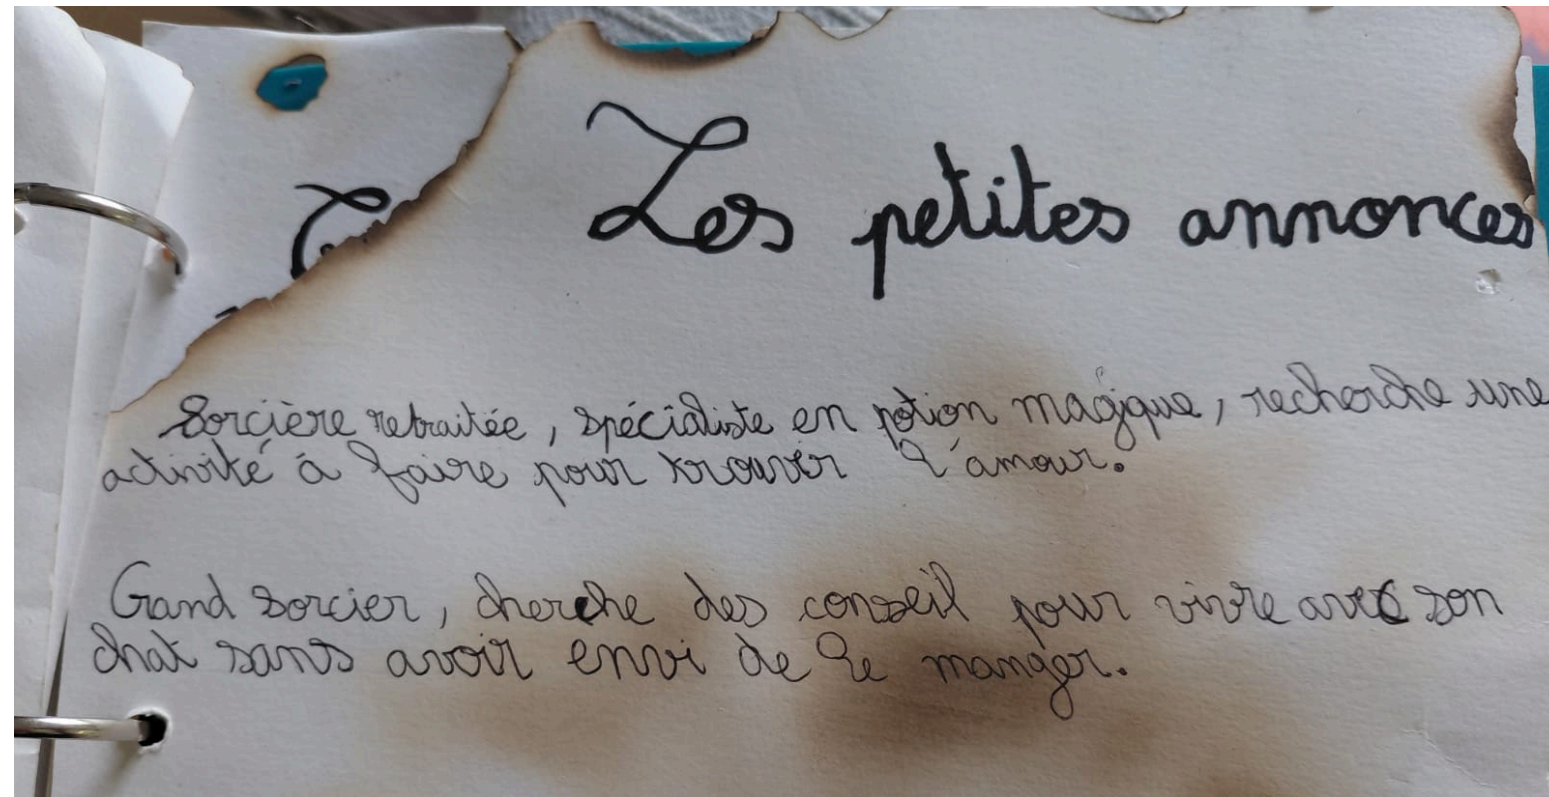 Les petites annonces
Sorcière retraitée, spécialiste en potion magique, recherche une
activité à faire pour trouver l'amour.
Grand sorcier, cherche des conseil pour vivre avec son
chat sans avoir envi de le manger.